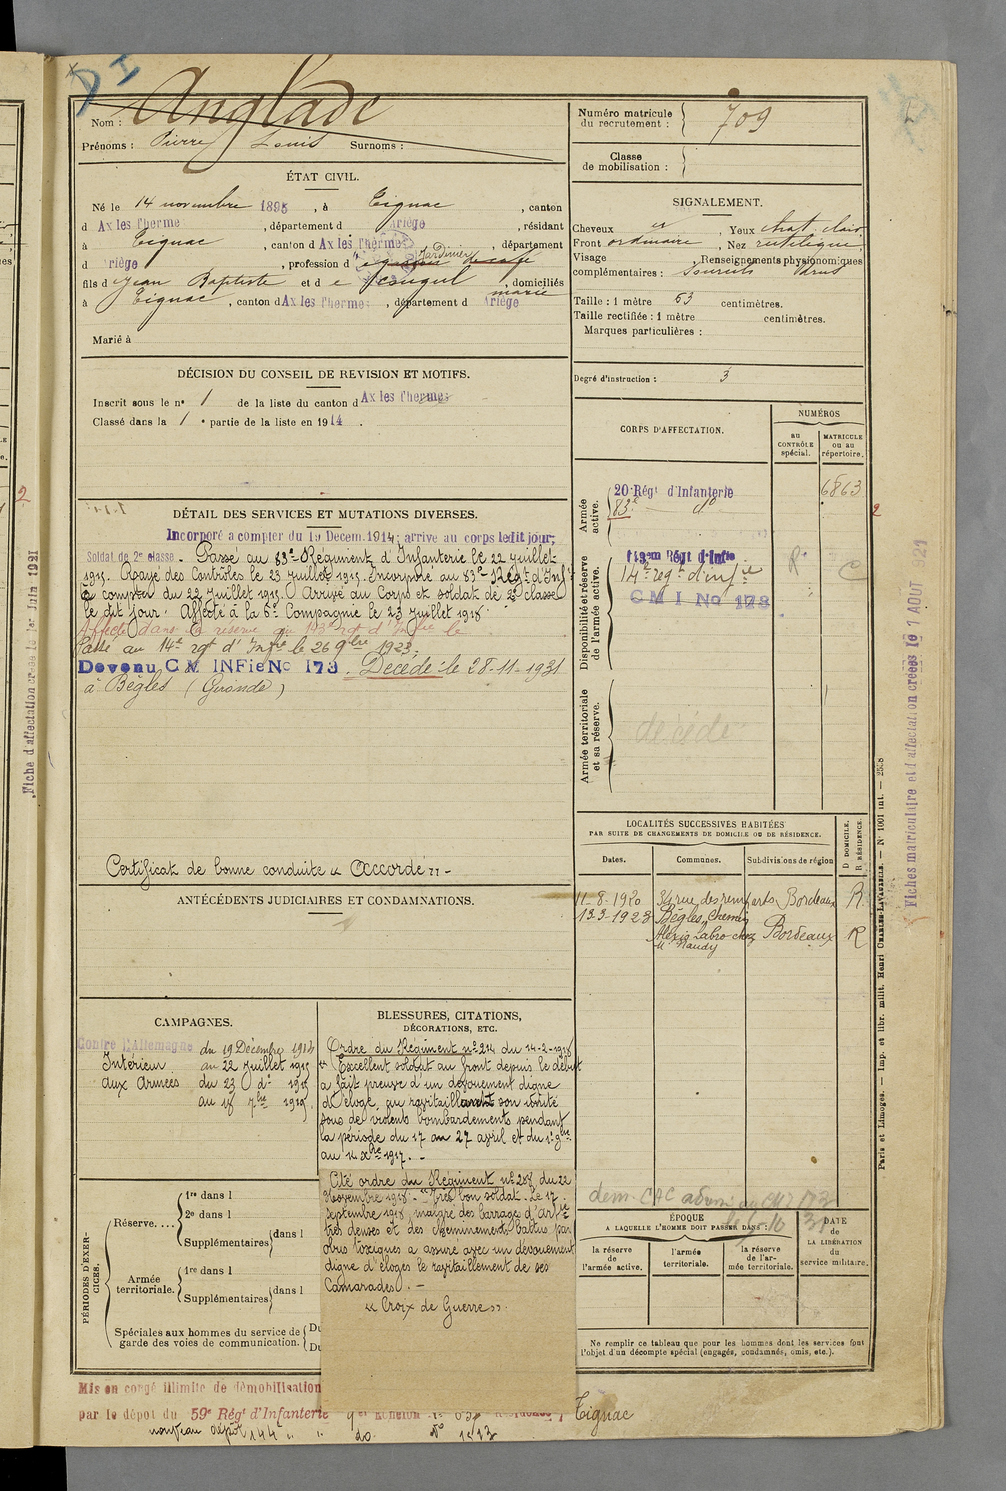 D I
Nom : Anglade
Prénoms : Pierre Louis Surnoms :
Numéro matricule
du recrutement : 709
Classe
de mobilisation :
ÉTAT CIVIL.
Né le 14 novembre 1895, à Tignac, canton
d Ax les Thermes, département d Ariège, résidant
à Tignac, canton d Ax les Thermes, département
d riège, profession d Jardinier
fils d Jean Baptiste et d e Rouqul, domiciliés
à Tignac, canton d Ax les Thermes, département d Ariège
marié
Marié à
SIGNALEMENT.
Cheveux, Yeux chat. clair
Front ordinaire, Nez rectiligne
Visage Renseignements physionomiques
complémentaires : Sourcils drus
Taille : 1 mètre 63 centimètres.
Taille rectifiée : 1 mètre centimètres.
Marques particulières :
Degré d'instruction : 3
DÉCISION DU CONSEIL DE REVISION ET MOTIFS.
Inscrit sous le n° 1 de la liste du canton d Ax les Thermes
Classé dans la 1 e partie de la liste en 1914.
CORPS D'AFFECTATION.
NUMÉROS
AU CONTRÔLE spécial.
MATRICULE ou au répertoire.
Armée active.
20 Régt d'Infanterie 6863
83e do
Disponibilité et réserve de l'armée active.
143em Régt d'Infie
14e regt d'infie
C M I No 173
Armée territoriale et sa réserve.
décédé
DÉTAIL DES SERVICES ET MUTATIONS DIVERSES.
Incorporé a compter du 19 Decem. 1914, arrive au corps ledit jour,
Soldat de 2e classe. Passé au 83e Régiment d'Infanterie le 22 juillet
1915. Rayé des Contrôles le 23 juillet 1915. Incorporé au 83e Régt d'Infie
à compter du 22 juillet 1915. Arrivé au Corps et soldat de 2e classe
le dit jour. Affecté à la 6e Compagnie le 23 juillet 1915
Affecté dans la réserve au 143e rgt d'Infie le
Passé au 14e rgt d'Infie le 26 9bre 1923.
Devenu C M INFie No 173. Décédé le 28-11-1931
à Bègles (Gironde)
Certificat de bonne conduite « Accordé » -
ANTÉCÉDENTS JUDICIAIRES ET CONDAMNATIONS.
LOCALITÉS SUCCESSIVES HABITÉES
PAR SUITE DE CHANGEMENTS DE DOMICILE OU DE RÉSIDENCE.
Dates. Communes. Subdivisions de région D DOMICILE. R RÉSIDENCE.
11-8-1920 34 rue des remparts Bordeaux R
13-3-1928 Bègles, Chemin
Alexis Labro chez Bordeaux R
Mr Naudy
CAMPAGNES.
Contre l'Allemagne du 19 Décembre 1914
Intérieur au 22 juillet 1915
aux Armées du 23 do 1915
au 18 7bre 1919.
BLESSURES, CITATIONS,
DÉCORATIONS, ETC.
Ordre du Régiment n° 214 du 14-2-1918
« Excellent soldat au front depuis le début
a fait preuve d'un dévouement digne
d'éloge au ravitaillement son unité
sous de violents bombardements pendant
la période du 17 au 27 avril et du 1er 9bre
au 14 Xbre 1917. -
Cité ordre du Régiment n° 288 du 22
Novembre 1918. - "Très bon soldat. Le 17
septembre 1918, malgré des barrages d'artie
très denses et des cheminements battus par
obus toxiques a assuré avec un dévouement
digne d'éloges le ravitaillement de ses
Camarades. -
« Croix de Guerre ».
PÉRIODES D'EXERCICES.
Réserve....
1re dans l
2e dans l
Supplémentaires dans l
Armée territoriale.
1re dans l
Supplémentaires dans l
Spéciales aux hommes du service de garde des voies de communication.
Du
Du
ÉPOQUE
A LAQUELLE L'HOMME DOIT PASSER DANS :
la réserve de l'armée active.
l'armée territoriale.
la réserve de l'armée territoriale.
DATE
de
LA LIBÉRATION
du
service militaire.
Ne remplir ce tableau que pour les hommes dont les services font
l'objet d'un décompte spécial (engagés, condamnés, omis, etc.).
Mis en congé illimité de démobilisation
par le dépot du 59e Régt d'Infanterie Tignac
nouveau dépôt 144e
Paris et Limoges. — Imp. et libr. milit. Henri CHARLES-LAVAUZELLE. — N° 1001 int. —
Fiches matriculaire et d'affectation créées le 1 AOUT 1921
Fiche d'affectation créée le 1er Juin 1921